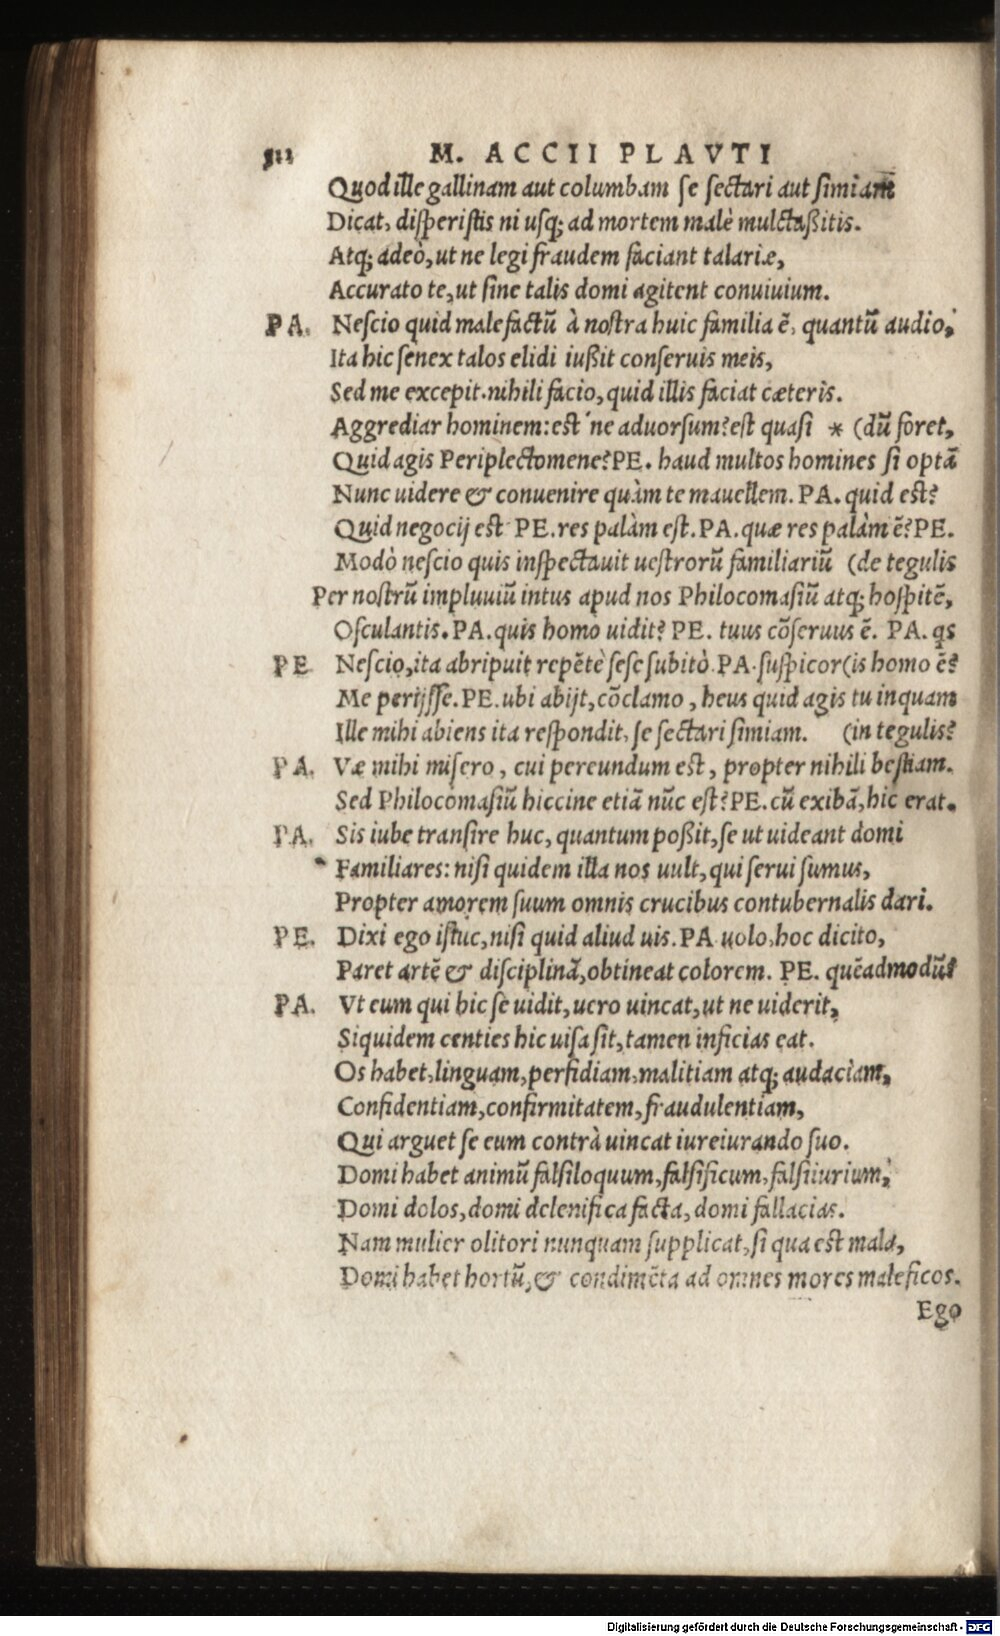 512 M. ACCII PLAVTI
Quod ille gallinam aut columbam se sectari aut simiam
Dicat, disperistis ni usq; ad mortem malè mulctaßitis.
Atq; adeò, ut ne legi fraudem faciant talariæ,
Accurato te, ut sine talis domi agitent conuiuium.
PA. Nescio quid malefactũ à nostra huic familia ẽ, quantũ audio,
Ita hic senex talos elidi iußit conseruis meis,
Sed me excepit. nihili facio, quid illis faciat cæteris.
Aggrediar hominem: est ne aduorsum? est quasi * (dũ foret,
Quid agis Periplectomene? PE. haud multos homines si optã
Nunc uidere & conuenire quàm te mauellem. PA. quid est?
Quid negocij est PE. res palàm est. PA. quæ res palàm ẽ? PE.
Modò nescio quis inspectauit uestrorũ familiariũ (de tegulis
Per nostrũ impluuiũ intus apud nos Philocomasiũ atq; hospitẽ,
Osculantis. PA. quis homo uidit? PE. tuus cõseruus ẽ. PA. qs
PE Nescio, ita abripuit repẽtè sese subitò. PA. suspicor (is homo ẽ?
Me perijsse. PE. ubi abijt, cõclamo, heus quid agis tu inquam
Ille mihi abiens ita respondit, se sectari simiam. (in tegulis?
PA. Væ mihi misero, cui pereundum est, propter nihili bestiam.
Sed Philocomasiũ hiccine etiã nũc est? PE. cũ exibã, hic erat.
PA. Sis iube transire huc, quantum poßit, se ut uideant domi
Familiares: nisi quidem illa nos uult, qui serui sumus,
Propter amorem suum omnis crucibus contubernalis dari.
PE. Dixi ego istuc, nisi quid aliud uis. PA uolo, hoc dicito,
Paret artẽ & disciplinã, obtineat colorem. PE. quẽadmodũ?
PA. Vt eum qui hic se uidit, uero uincat, ut ne uiderit,
Siquidem centies hic uisa sit, tamen inficias eat.
Os habet, linguam, perfidiam, malitiam atq; audaciam,
Confidentiam, confirmitatem, fraudulentiam,
Qui arguet se eum contrà uincat iureiurando suo.
Domi habet animũ falsiloquum, falsificum, falsiiurium,
Domi dolos, domi delenifica facta, domi fallacias.
Nam mulier olitori nunquam supplicat, si qua est mala,
Domi habet hortũ, & condimẽta ad omnes mores maleficos.
Ego
Digitalisierung gefördert durch die Deutsche Forschungsgemeinschaft - DFG